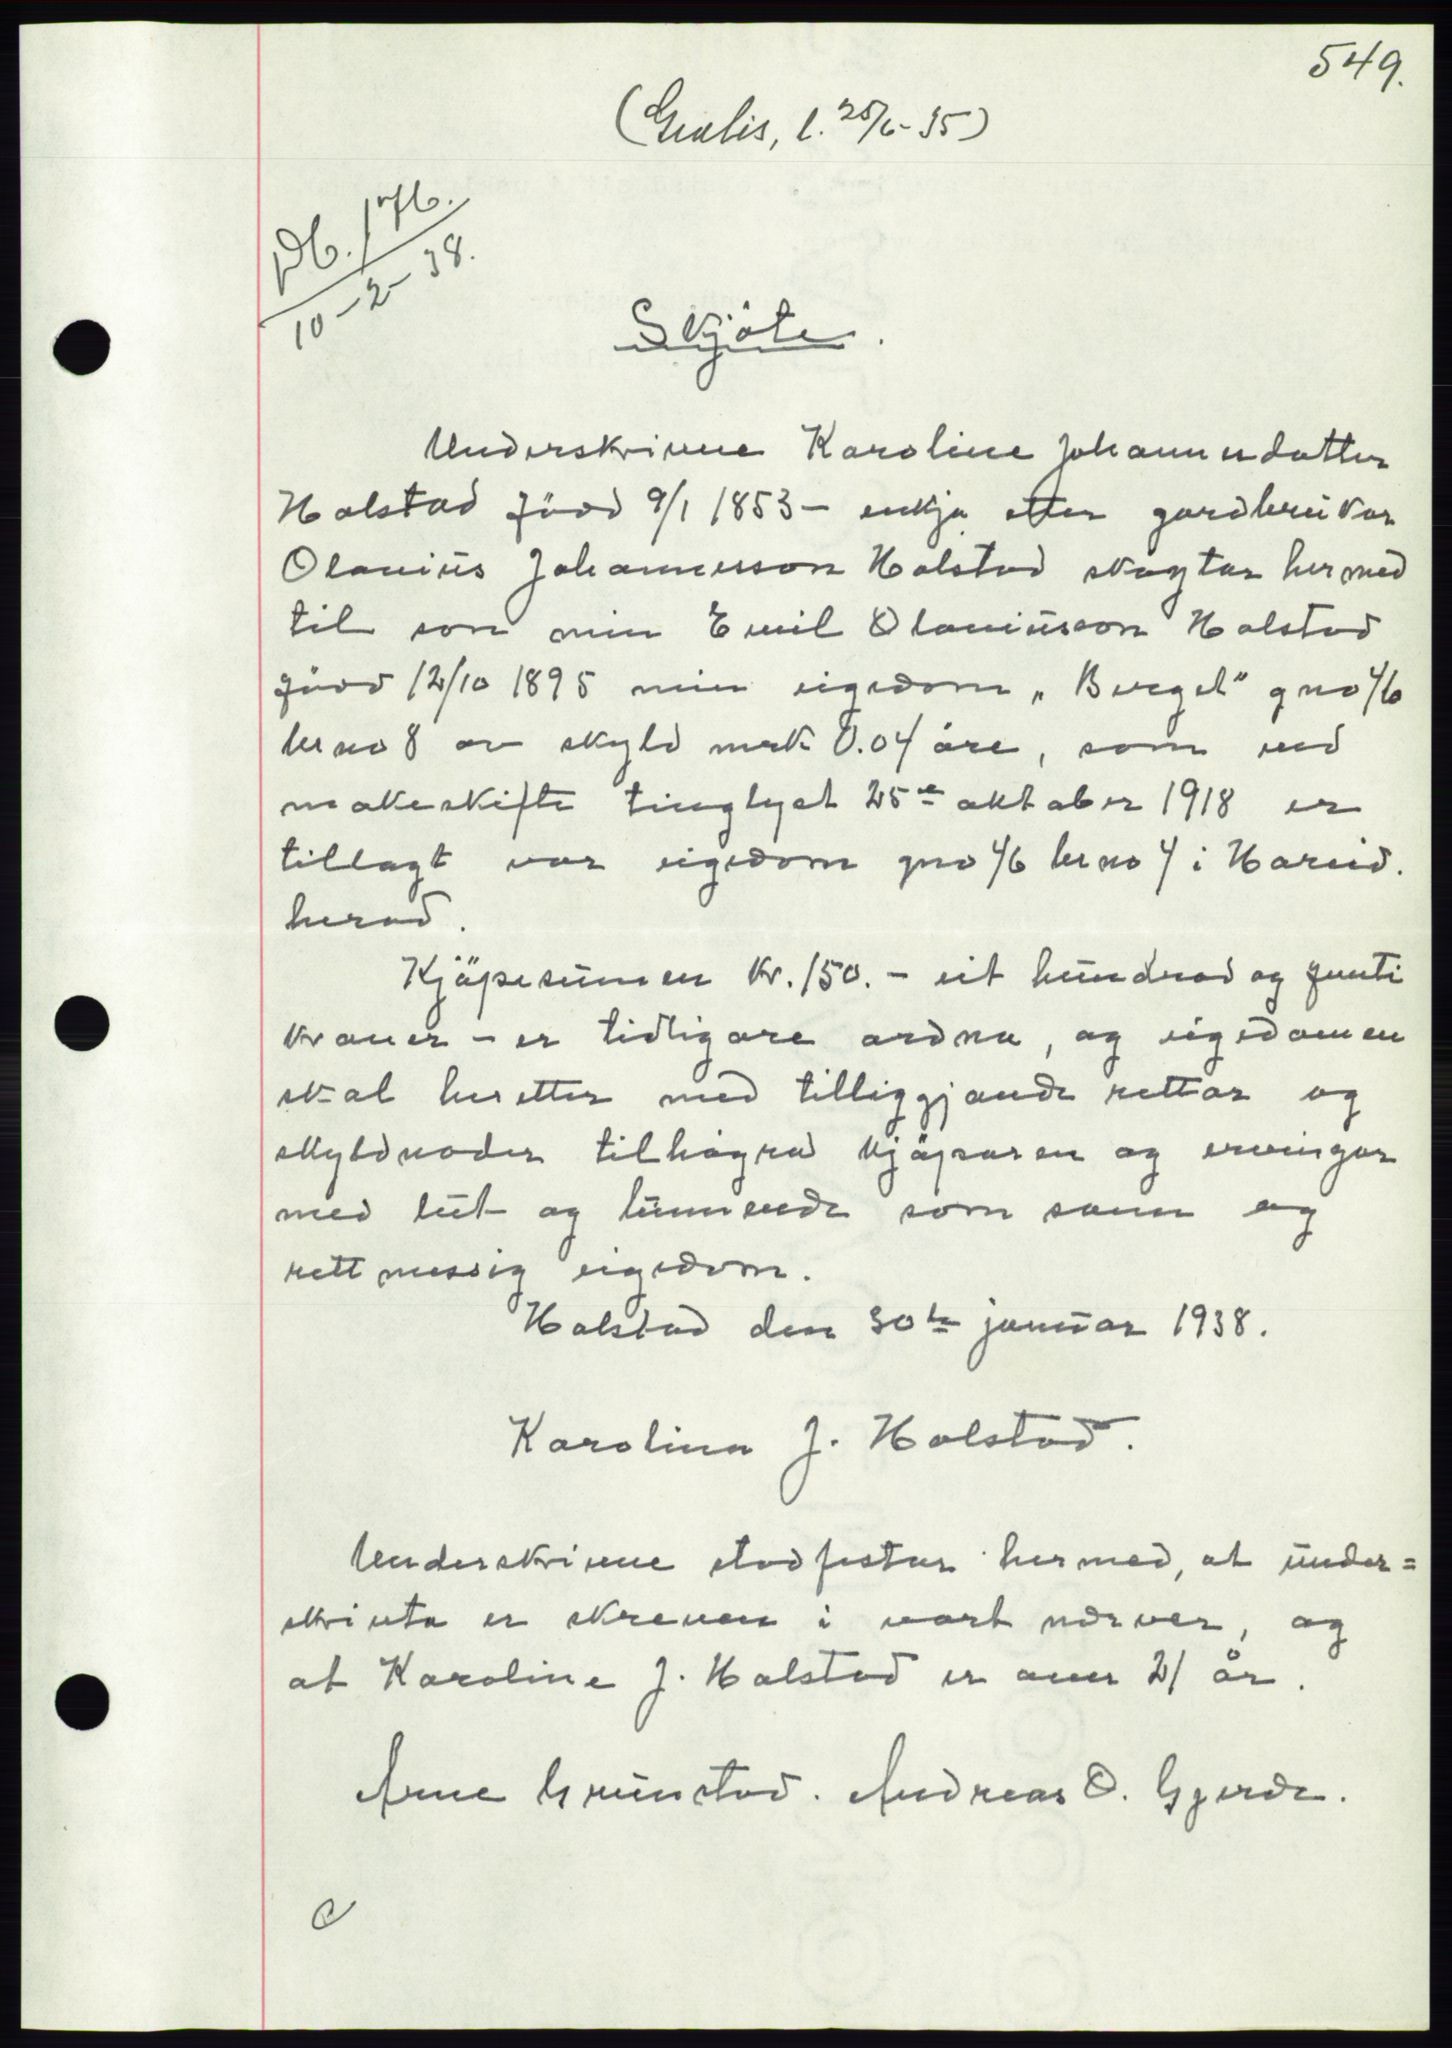 549.
(Gratis, l. 25/6-35)
Db. 176.
10-2-38.
Skjöte.
Underskrivne Karoline Johannesdatter
Holstad född 9/1 1853 - enkja etter gardbrukar
Olauius Johannesson Holstad skøytar hermed
til son min Emil Olauiusson Holstad
född 12/10 1895 min eigedom „Berget" gno 46
brno 8 av skyld mrk 0.04 øre, som ved
makeskifte tinglyst 25de oktober 1918 er
tillagt vor eigedom gno 46 brno 4 i Hareid.
herad.
Kjöpesummen kr. 150. - eit hundrad og femti
kroner - er tidligare ordna, og eigedomen
skal heretter med tilliggjande rettar og
skyldnader tilhøyra kjöparen og ervingar
med lut og lunnende som sann og
rettmessig eigedom.
Holstad den 30te januar 1938.
Karolina J. Holstad.
Underskrivne stadfestar hermed, at under=
skrivta er skreven i vart nærver, og
at Karoline J. Holstad er over 21 år.
Arne Grimstad. Andreas O. Gjerde.